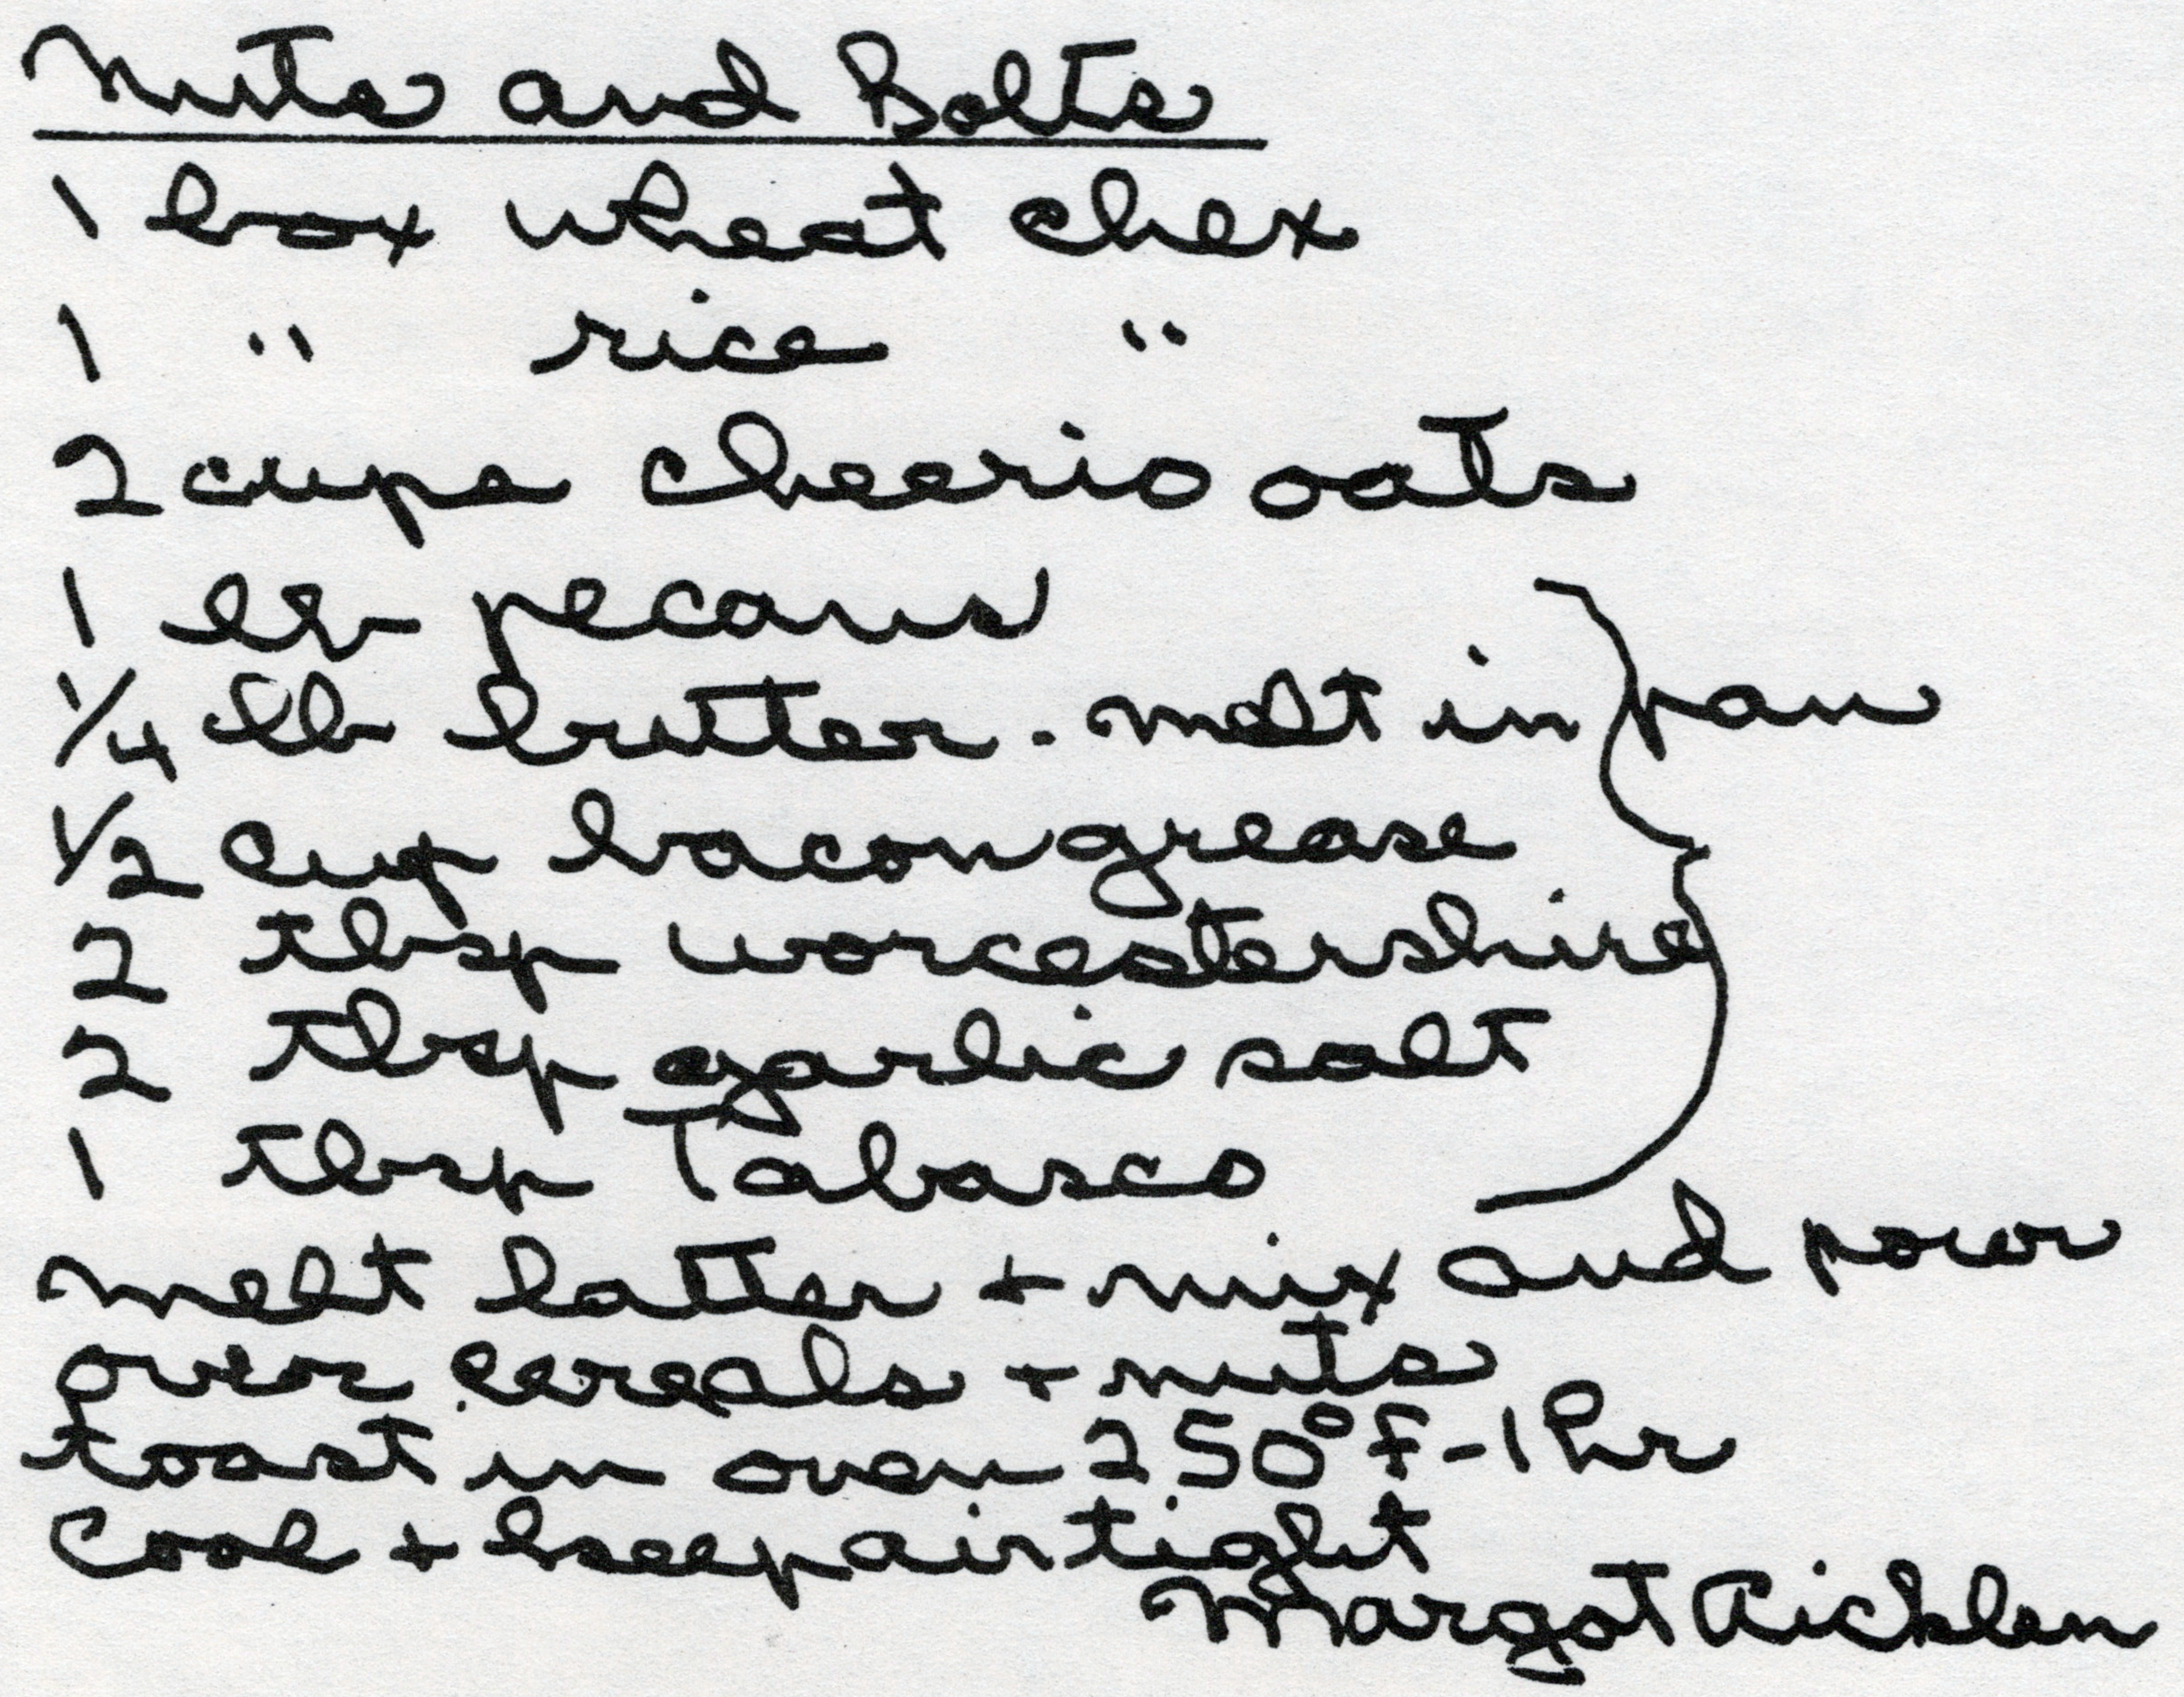 Nuts and Bolts
1 box wheat chex
1 " rice "
2 cups cheerio oats
1 lb pecans
1/4 lb butter. melt in pan
1/2 cup bacon grease
2 tbsp worcestershire
2 tbsp garlic salt
1 tbsp Tabasco
melt latter + mix and pour
over cereals + nuts
toast in oven 250°F - 1 hr
Cool + keep airtight
Margot Aicklen